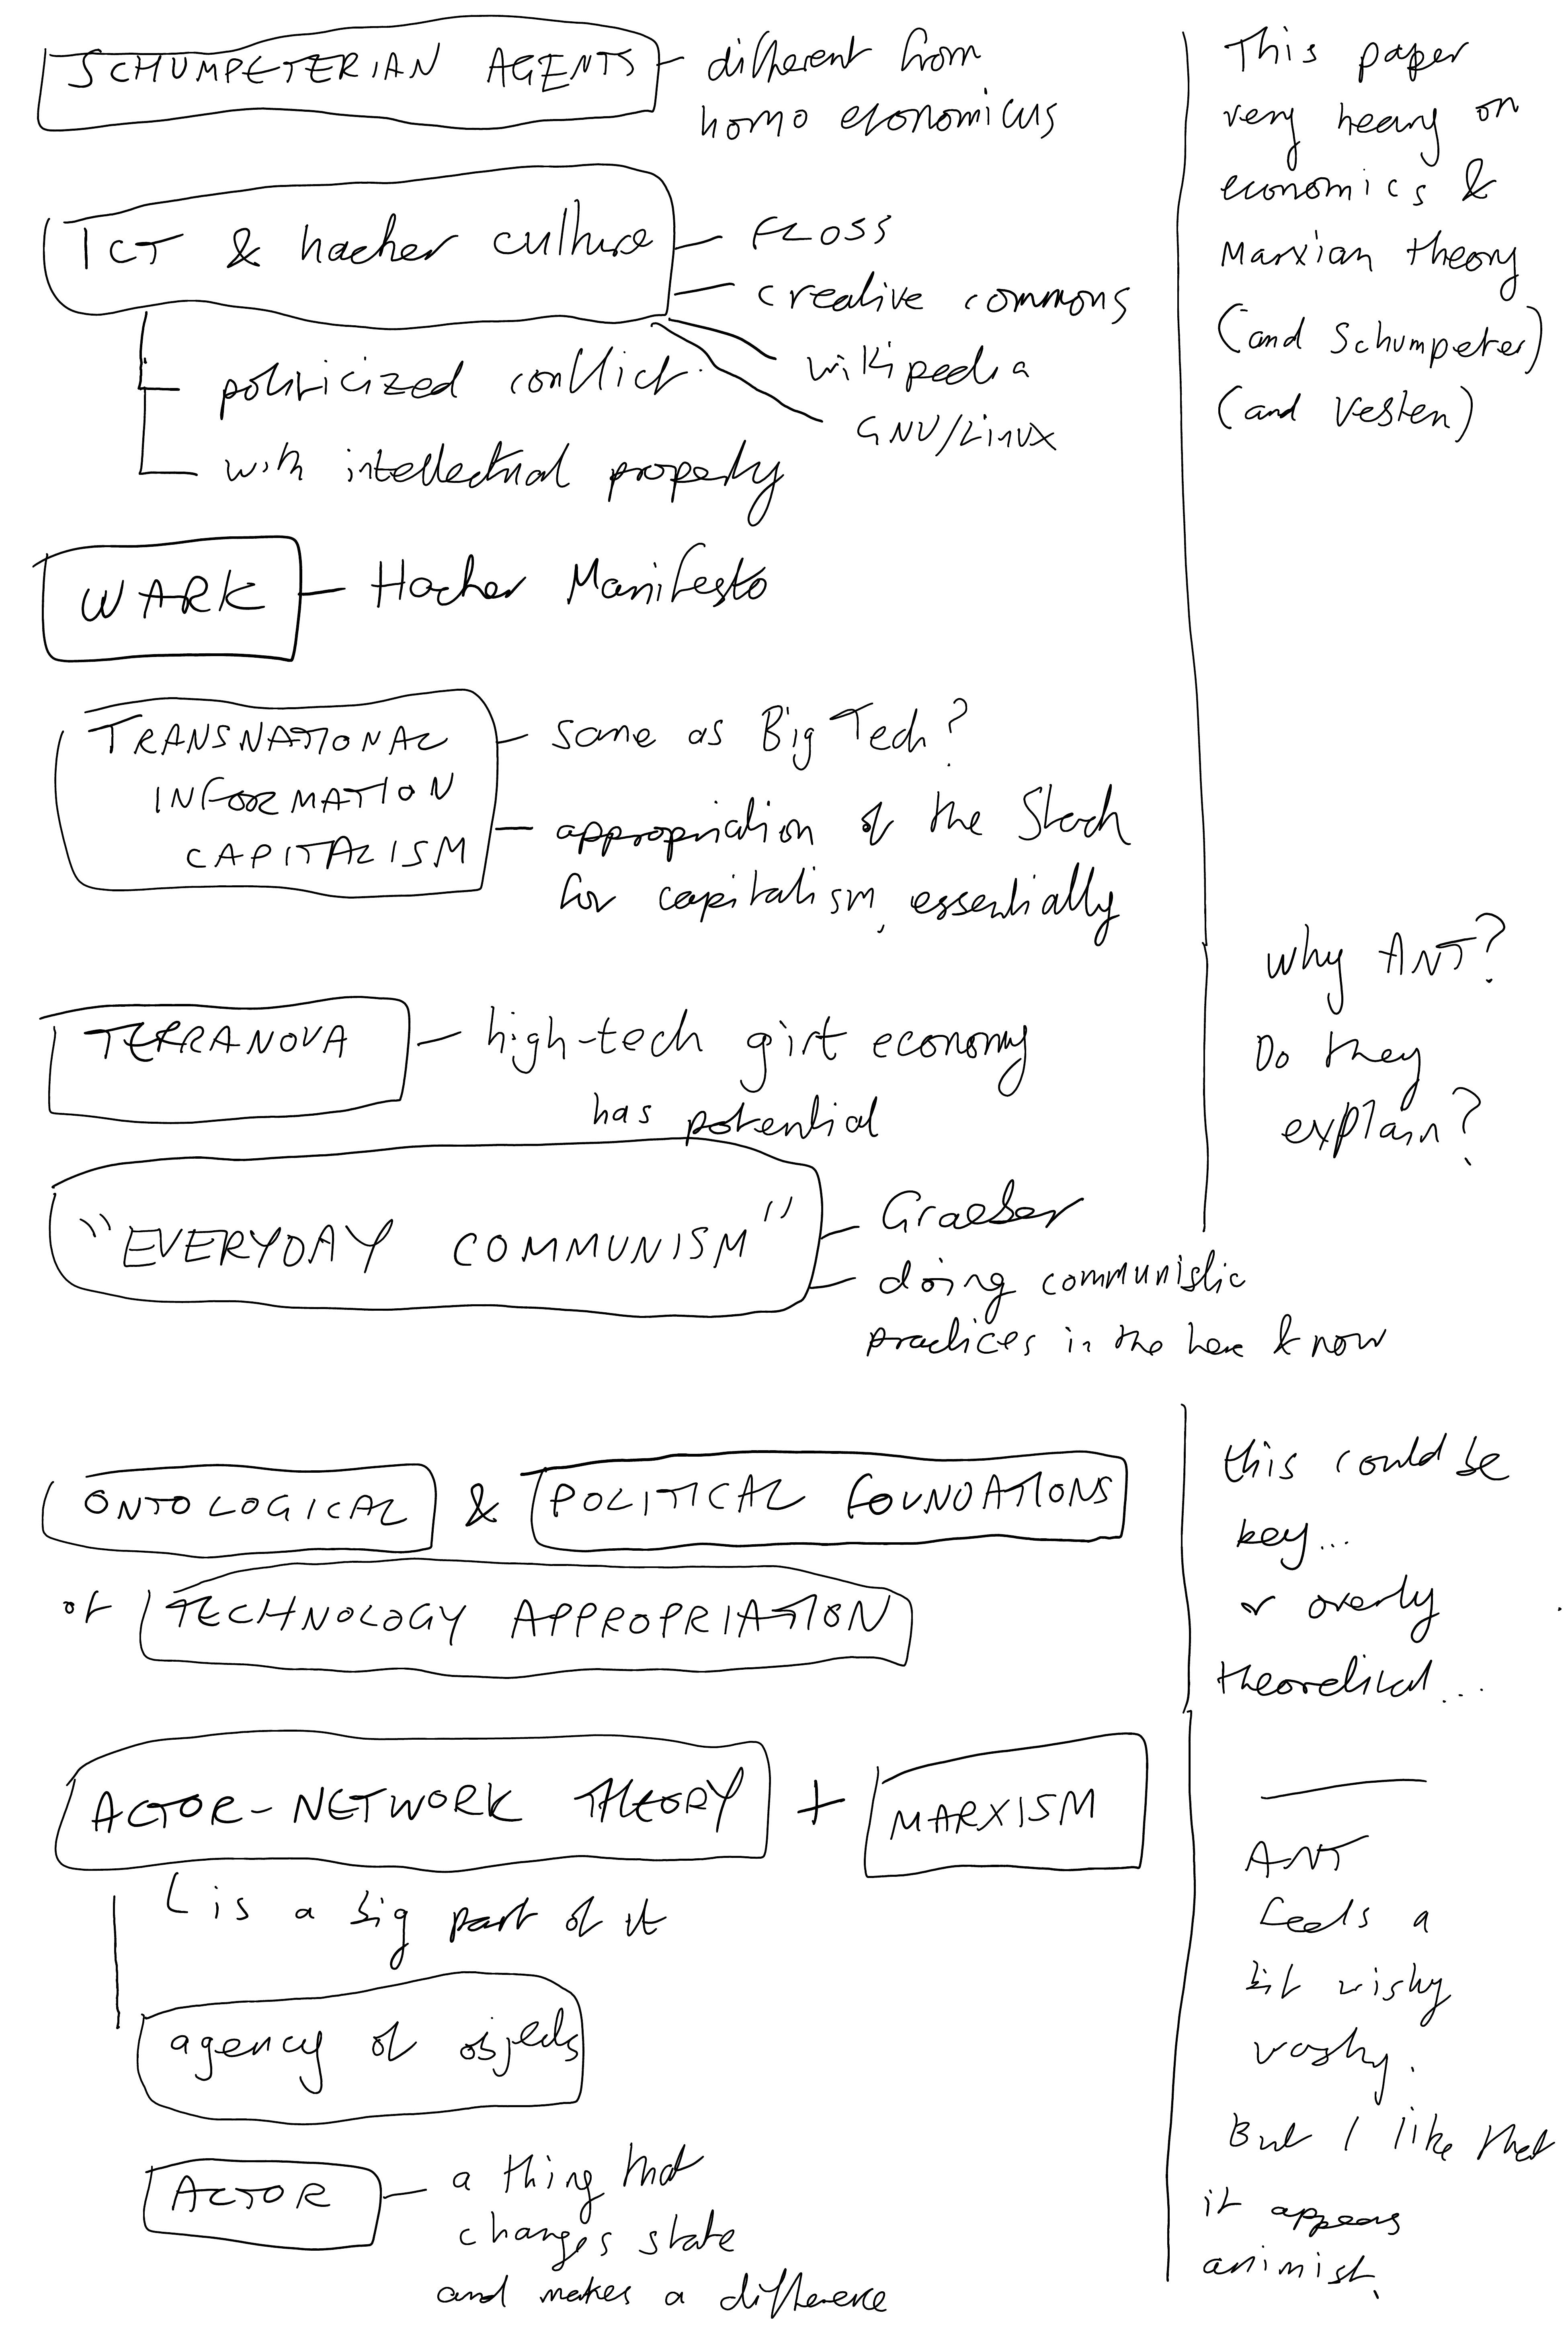 SCHUMPETERIAN AGENTS
different from
homo economicus
ICT & hacker culture
FLOSS
creative commons
wikipedia
GNU/Linux
politicized conflict
with intellectual property
WARK
Hacker Manifesto
TRANSNATIONAL
INFORMATION
CAPITALISM
same as Big Tech?
appropriation of the Stack
for capitalism, essentially
TERRANOVA
high-tech gift economy
has potential
"EVERYDAY COMMUNISM"
Graeber
doing communistic
practices in the here & now
ONTOLOGICAL & POLITICAL FOUNDATIONS
of TECHNOLOGY APPROPRIATION
ACTOR-NETWORK THEORY + MARXISM
is a big part of it
agency of objects
ACTOR
a thing that
changes state
and makes a difference
This paper
very heavy on
economics &
Marxian theory
(and Schumpeter)
(and Veblen)
Why ANT?
Do they
explain?
this could be
key...
or overly
theoretical...
ANT
feels a
bit wishy
washy.
But I like that
it appears
animist.